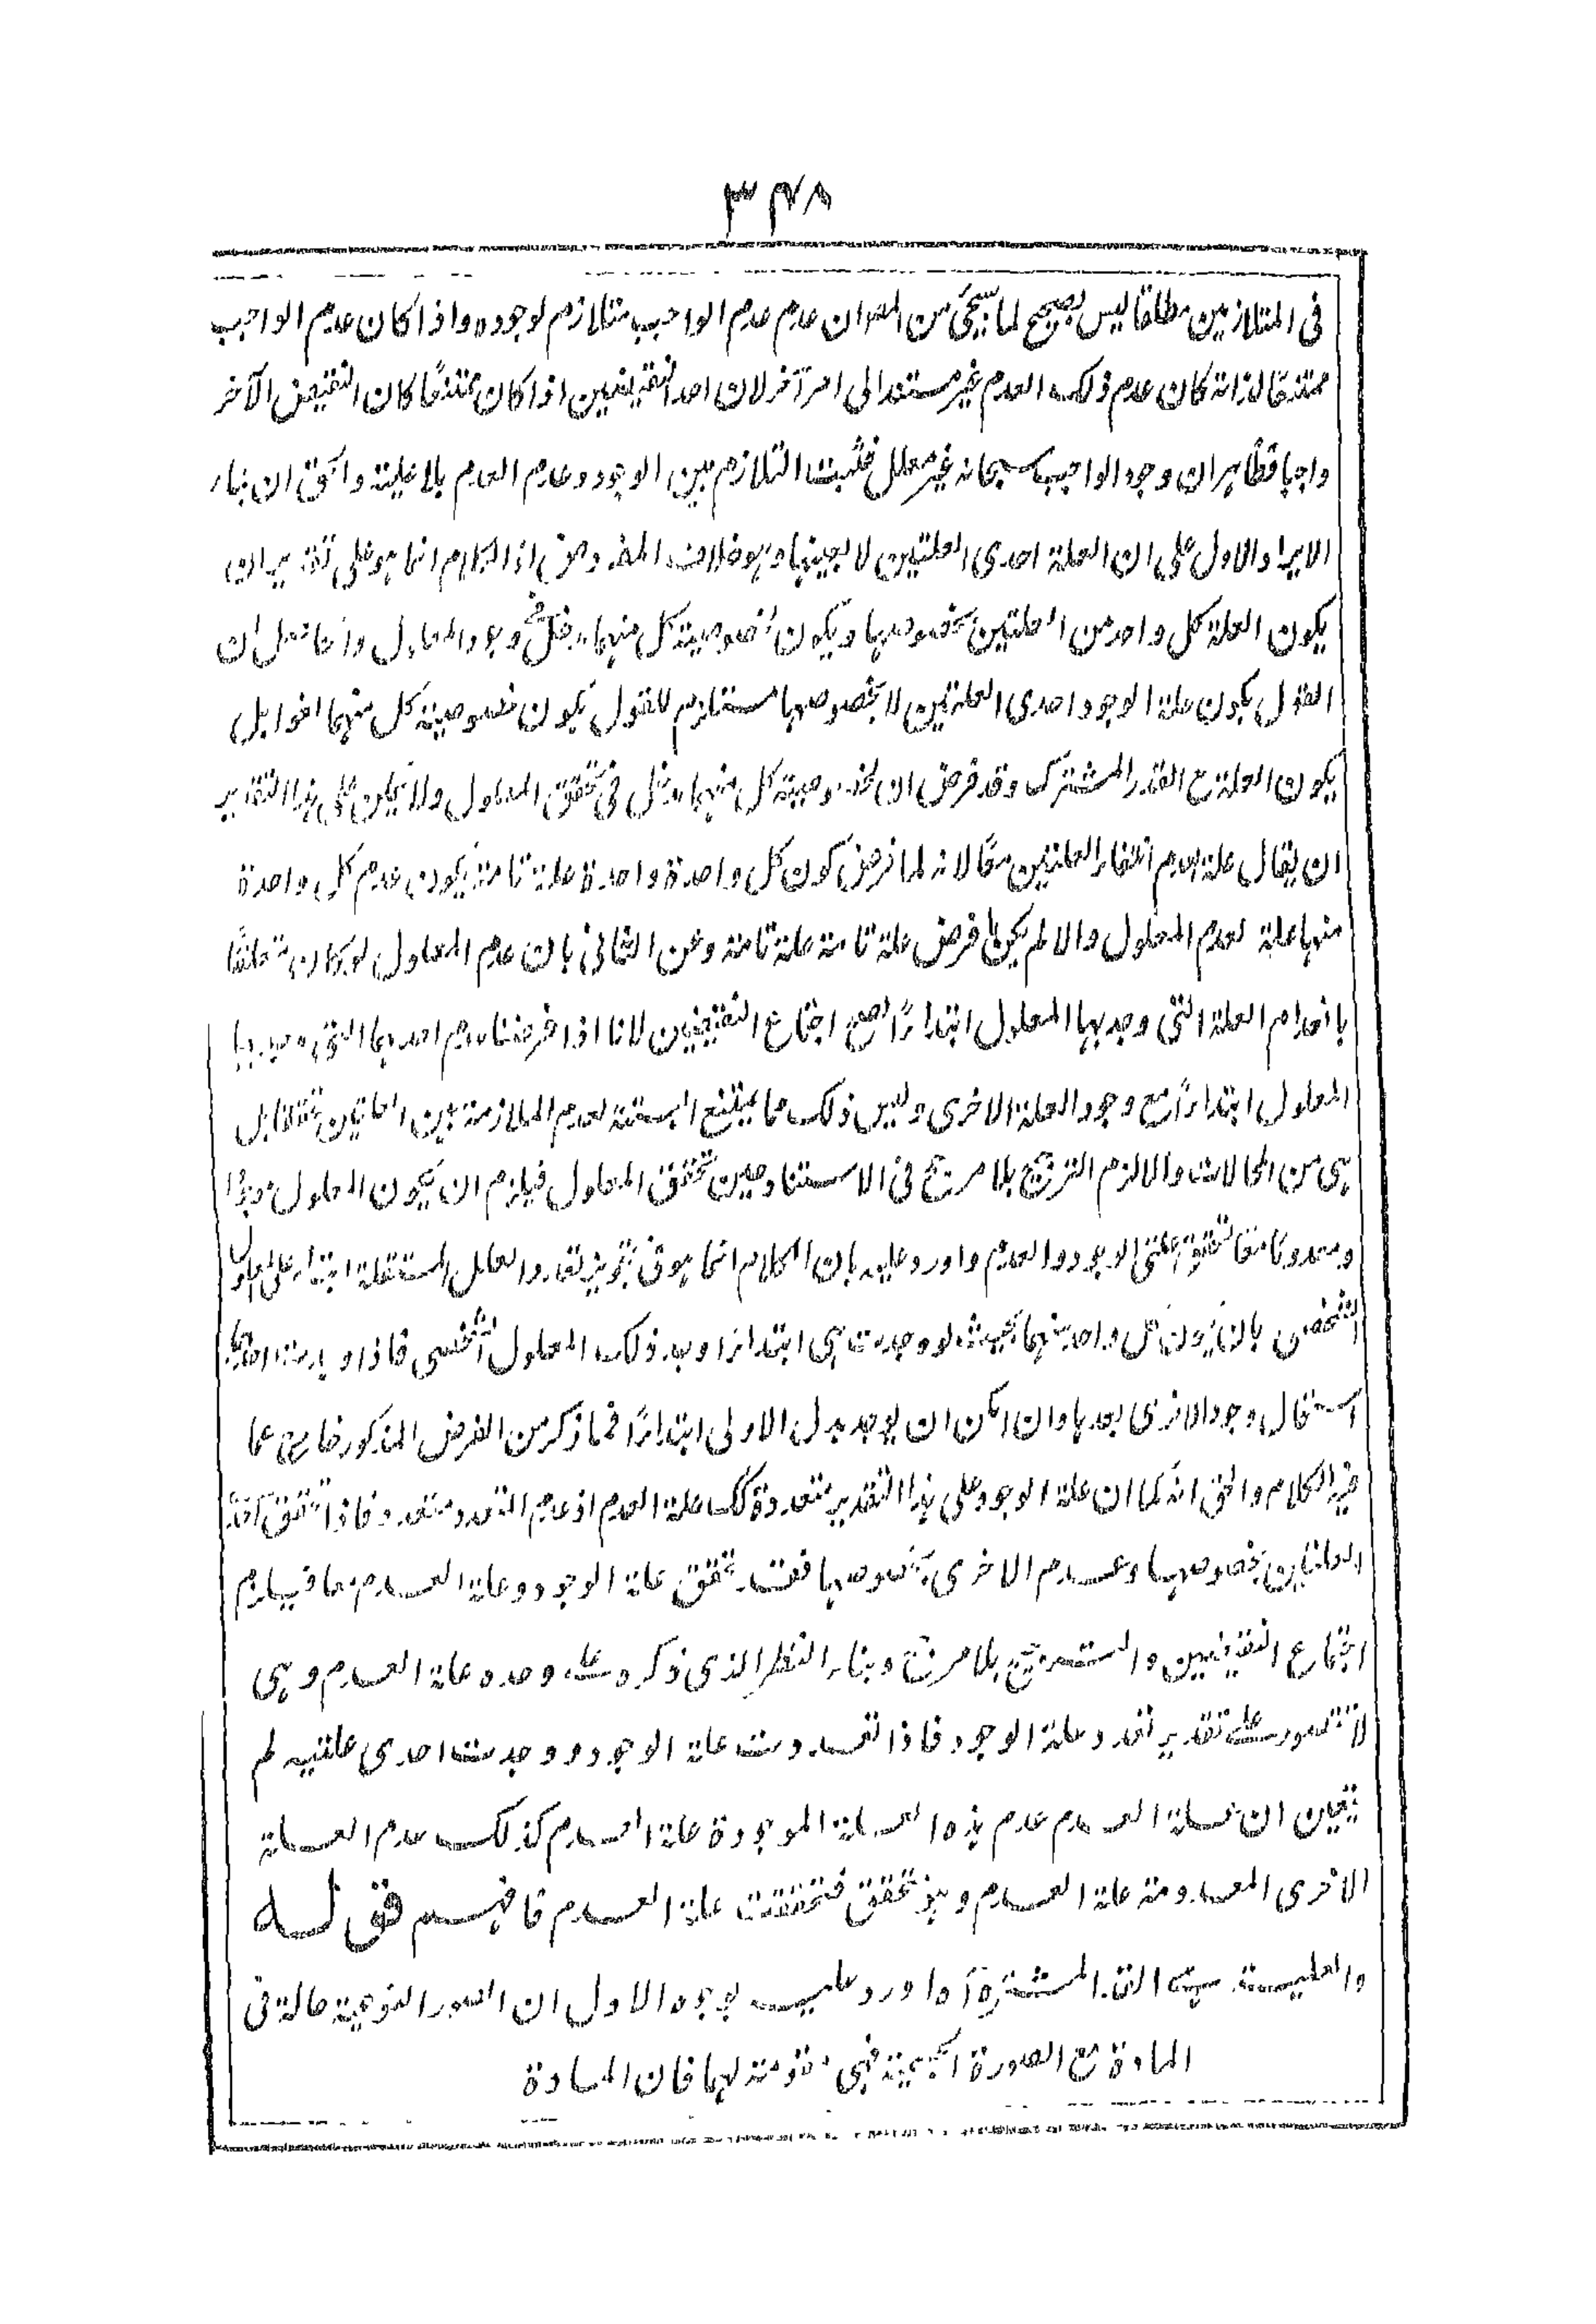 ٣٤٨
فى المتلازمين مطلقا ليس بصحيح لما سيجئ من المص ان عدم عدم الواجب متلازم لوجوده واذا كان عدم الواجب
ممتنعًا لذاته كان عدم ذلك العدم غير مستند الى امر آخر لان احد النقيضين اذا كان ممتنعًا كان النقيض الآخر
واجبا فظاهر ان وجود الواجب سبحانه غير معلل فثبت التلازم بين الوجود وعدم العدم بلا علية والحق ان بناء
الايراد الاول على ان العلة احدى العلتين لا بعينها وهو خلاف المفروض اذ الكلام انما هو على تقدير ان
يكون العلة كل واحد من العلتين بخصوصها ويكون لخصوصية كل منهما دخل فى وجود المعلول
القول بكون علة الوجود احدى العلتين لا بخصوصها مستلزم للقول بكون خصوصية كل منهما لغوا بل
يكون العلة ح القدر المشترك وقد فرض ان لخصوصية كل منهما دخل فى تحقق المعلول ولا يمكن على هذا التقدير
ان يقال علة العدم انتفاء العلتين معًا لانه لما فرض كون كل واحدة واحدة علة تامة يكون عدم كل واحدة
منها علة لعدم المعلول والا لم يكن ما فرض علة تامة علة تامة وعن الثانى بان عدم المعلول لو كان متعلقًا
بانعدام العلة التى وجد بها المعلول ابتداءً لصح اجتماع النقيضين لانا اذا فرضنا عدم احدهما التى وجد بها
المعلول ابتداءً مع وجود العلة الاخرى وليس ذلك مما يمتنع البتة لعدم الملازمة بين العلتين بل
هى من المحالات والا لزم الترجيح بلا مرجح فى الاستناد حين تحقق المعلول فيلزم ان يكون المعلول موجودًا
ومعدومًا معًا لتحقق علتى الوجود والعدم واورد عليه بان الكلام انما هو فى تجويز تعدد العلل المستقلة ابتداء على المعلول
الشخصى بان يكون كل واحد منهما بحيث لو وجدت هى ابتداءً وجد ذلك المعلول الشخصى فاذا وجدت احدهما
استحال وجود الاخرى بعدها وان امكن ان يوجد بدل الاولى ابتداءً فما ذكر من الفرض المذكور خارج عما
فيه الكلام والحق انه كما ان علة الوجود على هذا التقدير متعددة كك علة العدم اذ عدم المتعدد متعدد فاذا تحقق احد
العلتين بخصوصها وعدم الاخرى بخصوصها فقد تحقق علة الوجود وعلة العدم معا فيلزم
اجتماع النقيضين والترجيح بلا مرجح وبناء النظر الذى ذكر على وحدة علة العدم وهى
لا تتصور على تقدير تعدد علة الوجود فاذا تعددت علة الوجود ووجدت احدى علتيه لم
يتعين ان علة العدم عدم هذه العلة الموجودة علة العدم كذلك عدم العلة
الاخرى المعدومة علة العدم وهو تحقق فتحققت علة العدم فافهم قوله
والعلية هى القدر المشترك آه اورد عليه بوجوه الاول ان الصور النوعية حالة فى
المادة مع الصورة الجسمية فهى مقومة لهما فان المادة